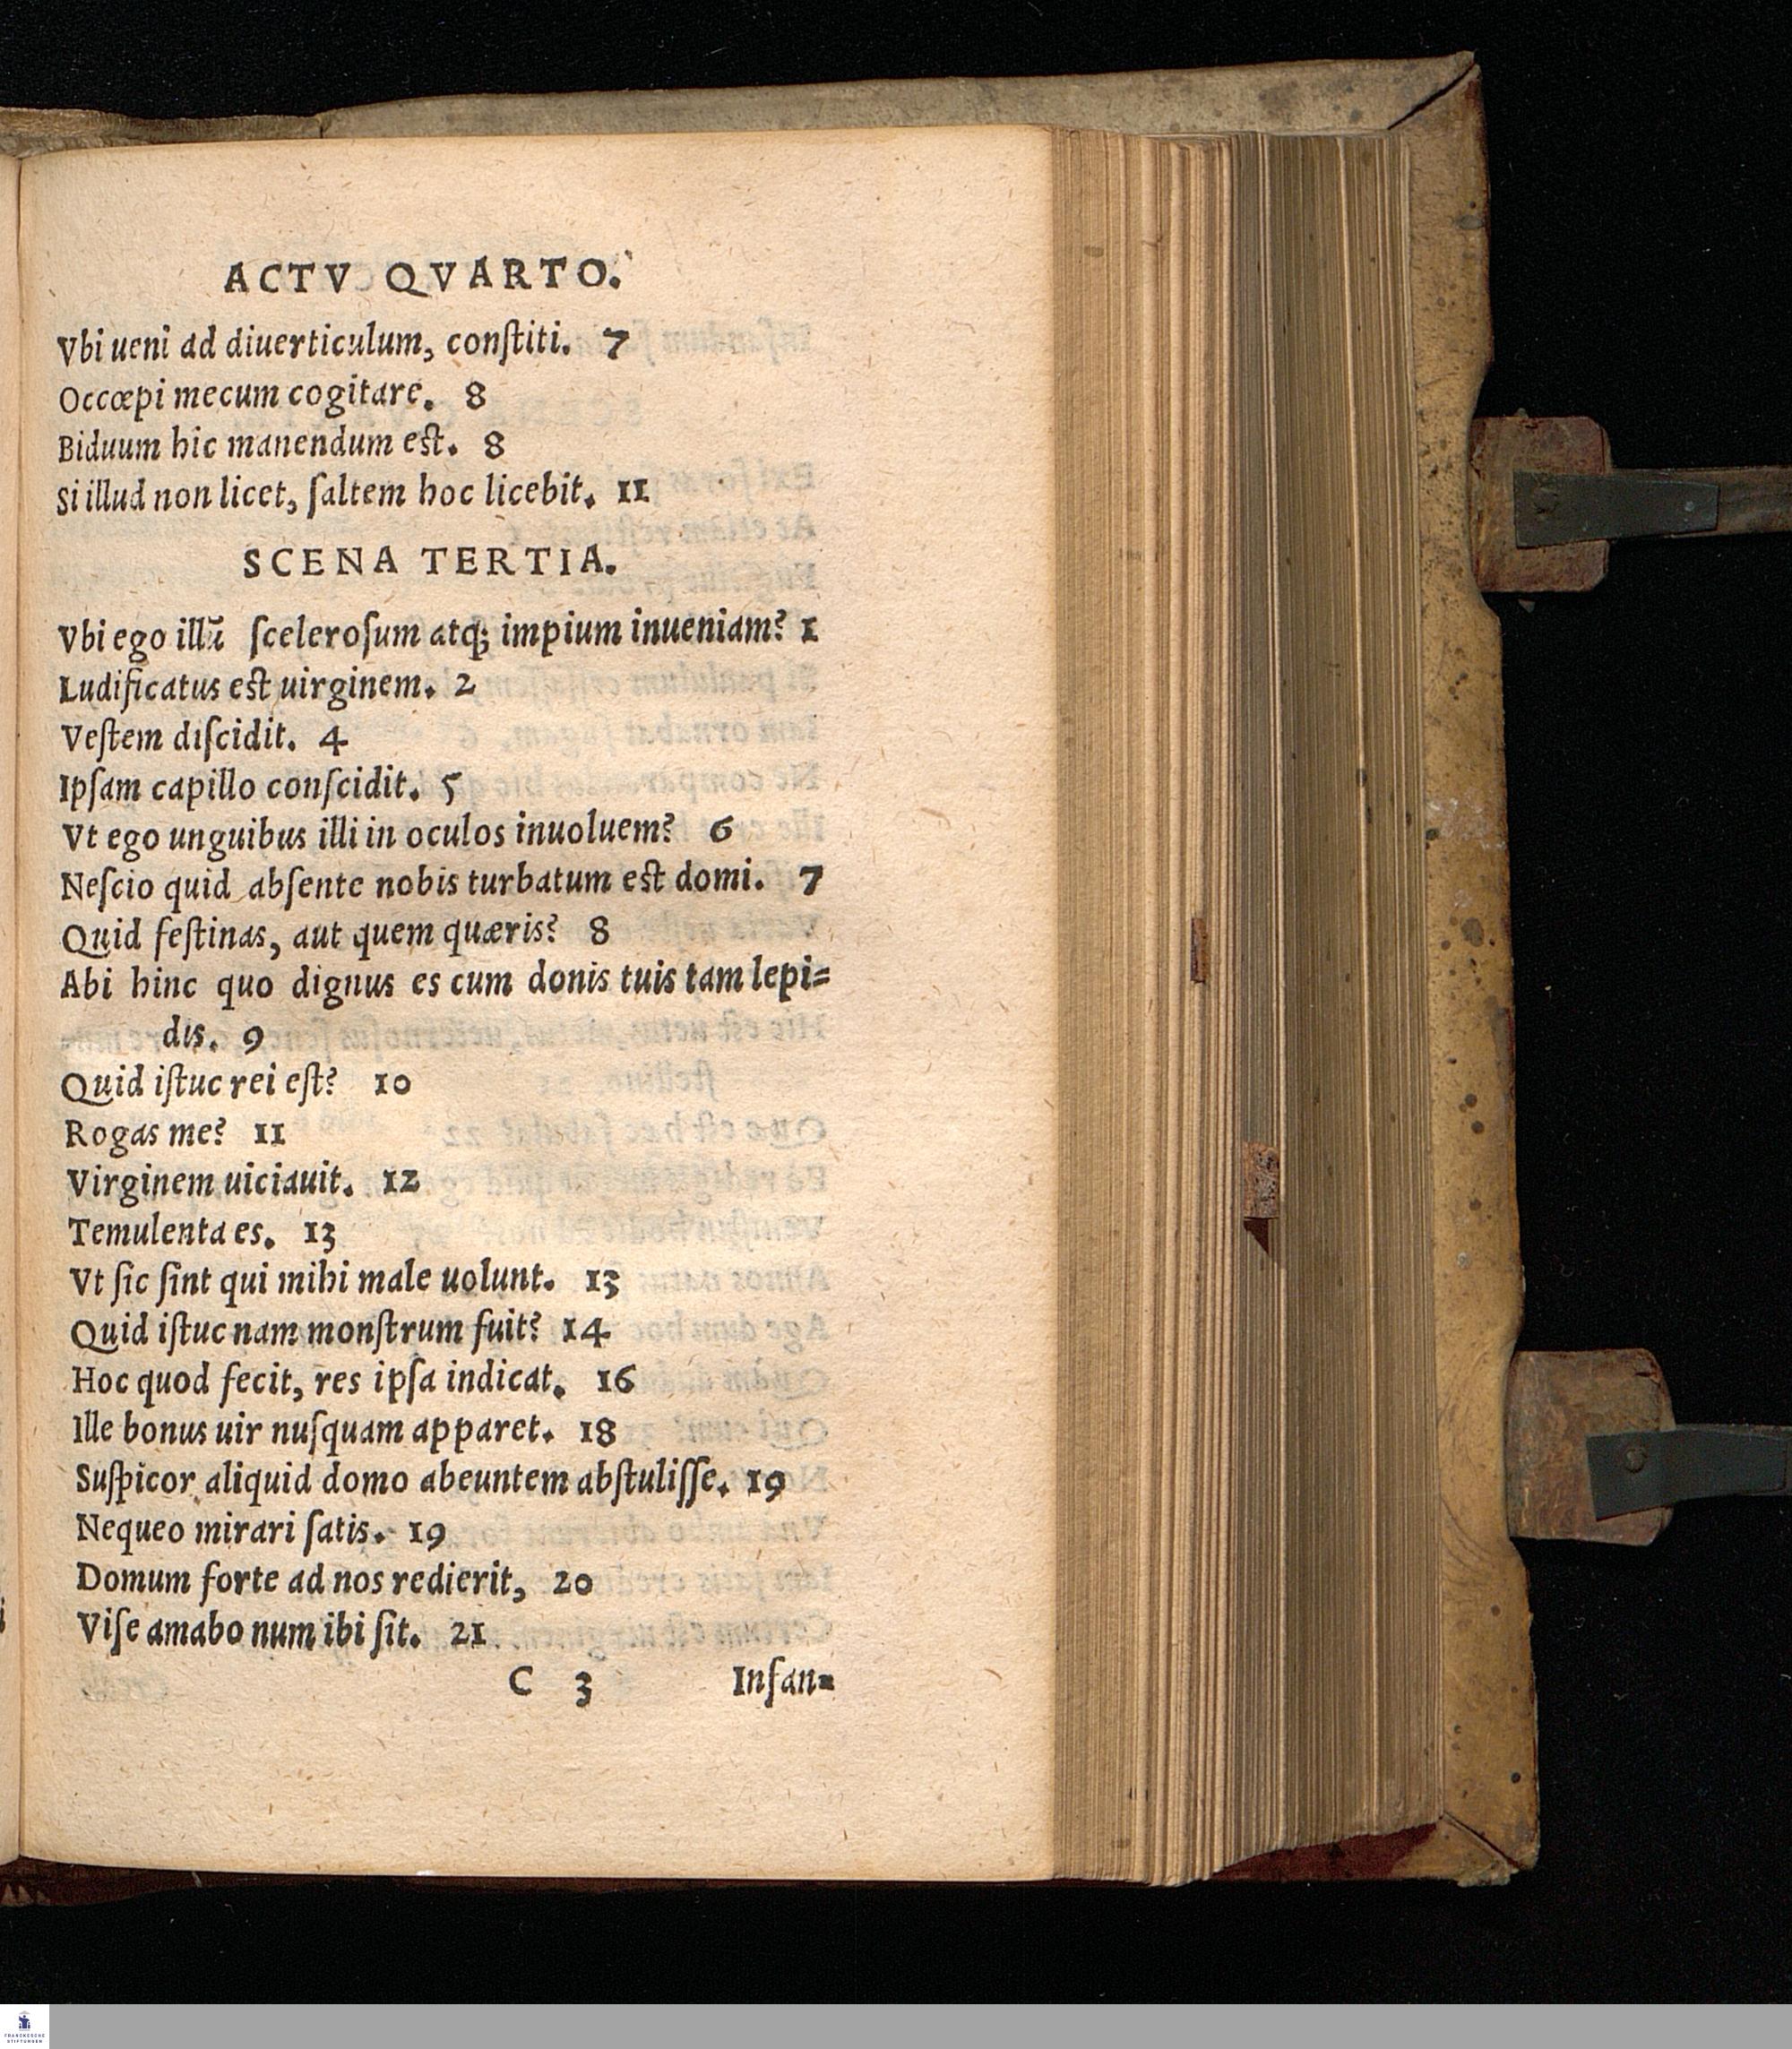 ACTV QVARTO.
Vbi ueni ad diuerticulum, conſtiti. 7
Occœpi mecum cogitare. 8
Biduum hic manendum eſt. 8
Si illud non licet, ſaltem hoc licebit. 11
SCENA TERTIA.
Vbi ego illū ſceleroſum atq; impium inueniam? 1
Ludificatus eſt uirginem. 2
Veſtem diſcidit. 4
Ipſam capillo conſcidit. 5
Vt ego unguibus illi in oculos inuoluem? 6
Neſcio quid abſente nobis turbatum eſt domi. 7
Quid feſtinas, aut quem quæris? 8
Abi hinc quo dignus es cum donis tuis tam lepi=
dis. 9
Quid iſtuc rei eſt? 10
Rogas me? 11
Virginem uiciauit. 12
Temulenta es. 13
Vt ſic ſint qui mihi male uolunt. 13
Quid iſtuc nam monſtrum fuit? 14
Hoc quod fecit, res ipſa indicat. 16
Ille bonus uir nuſquam apparet. 18
Suſpicor aliquid domo abeuntem abſtuliſſe. 19
Nequeo mirari ſatis. 19
Domum forte ad nos redierit, 20
Viſe amabo num ibi ſit. 21
C 3 Inſan=
FRANCKESCHE
STIFTUNGEN